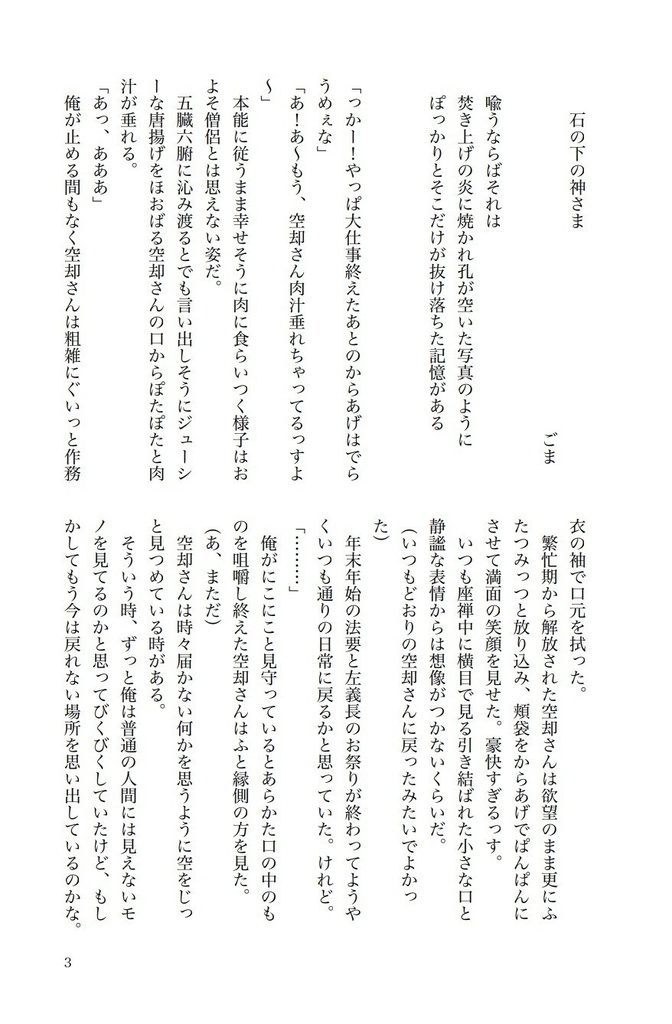 石の下の神さま
ごま
喩うならばそれは
焚き上げの炎に焼かれ孔が空いた写真のように
ぽっかりとそこだけが抜け落ちた記憶がある
「っかー！やっぱ大仕事終えたあとのからあげはでら
うめぇな」
「あ！あ〜もう、空却さん肉汁垂れちゃってるっすよ
〜」
本能に従うまま幸せそうに肉に食らいつく様子はお
よそ僧侶とは思えない姿だ。
五臓六腑に沁み渡るとでも言い出しそうにジューシ
ーな唐揚げをほおばる空却さんの口からぽたぽたと肉
汁が垂れる。
「あっ、あああ」
俺が止める間もなく空却さんは粗雑にぐいっと作務
衣の袖で口元を拭った。
繁忙期から解放された空却さんは欲望のまま更にふ
たつみっつと放り込み、頬袋をからあげでぱんぱんに
させて満面の笑顔を見せた。豪快すぎるっす。
いつも座禅中に横目で見る引き結ばれた小さな口と
静謐な表情からは想像がつかないくらいだ。
（いつもどおりの空却さんに戻ったみたいでよかっ
た）
年末年始の法要と左義長のお祭りが終わってようや
くいつも通りの日常に戻るかと思っていた。けれど。
「………」
俺がにこにこと見守っているとあらかた口の中のも
のを咀嚼し終えた空却さんはふと縁側の方を見た。
（あ、まただ）
空却さんは時々届かない何かを思うように空をじっ
と見つめている時がある。
そういう時、ずっと俺は普通の人間には見えないモ
ノを見てるのかと思ってびくびくしていたけど、もし
かしてもう今は戻れない場所を思い出しているのかな。
3